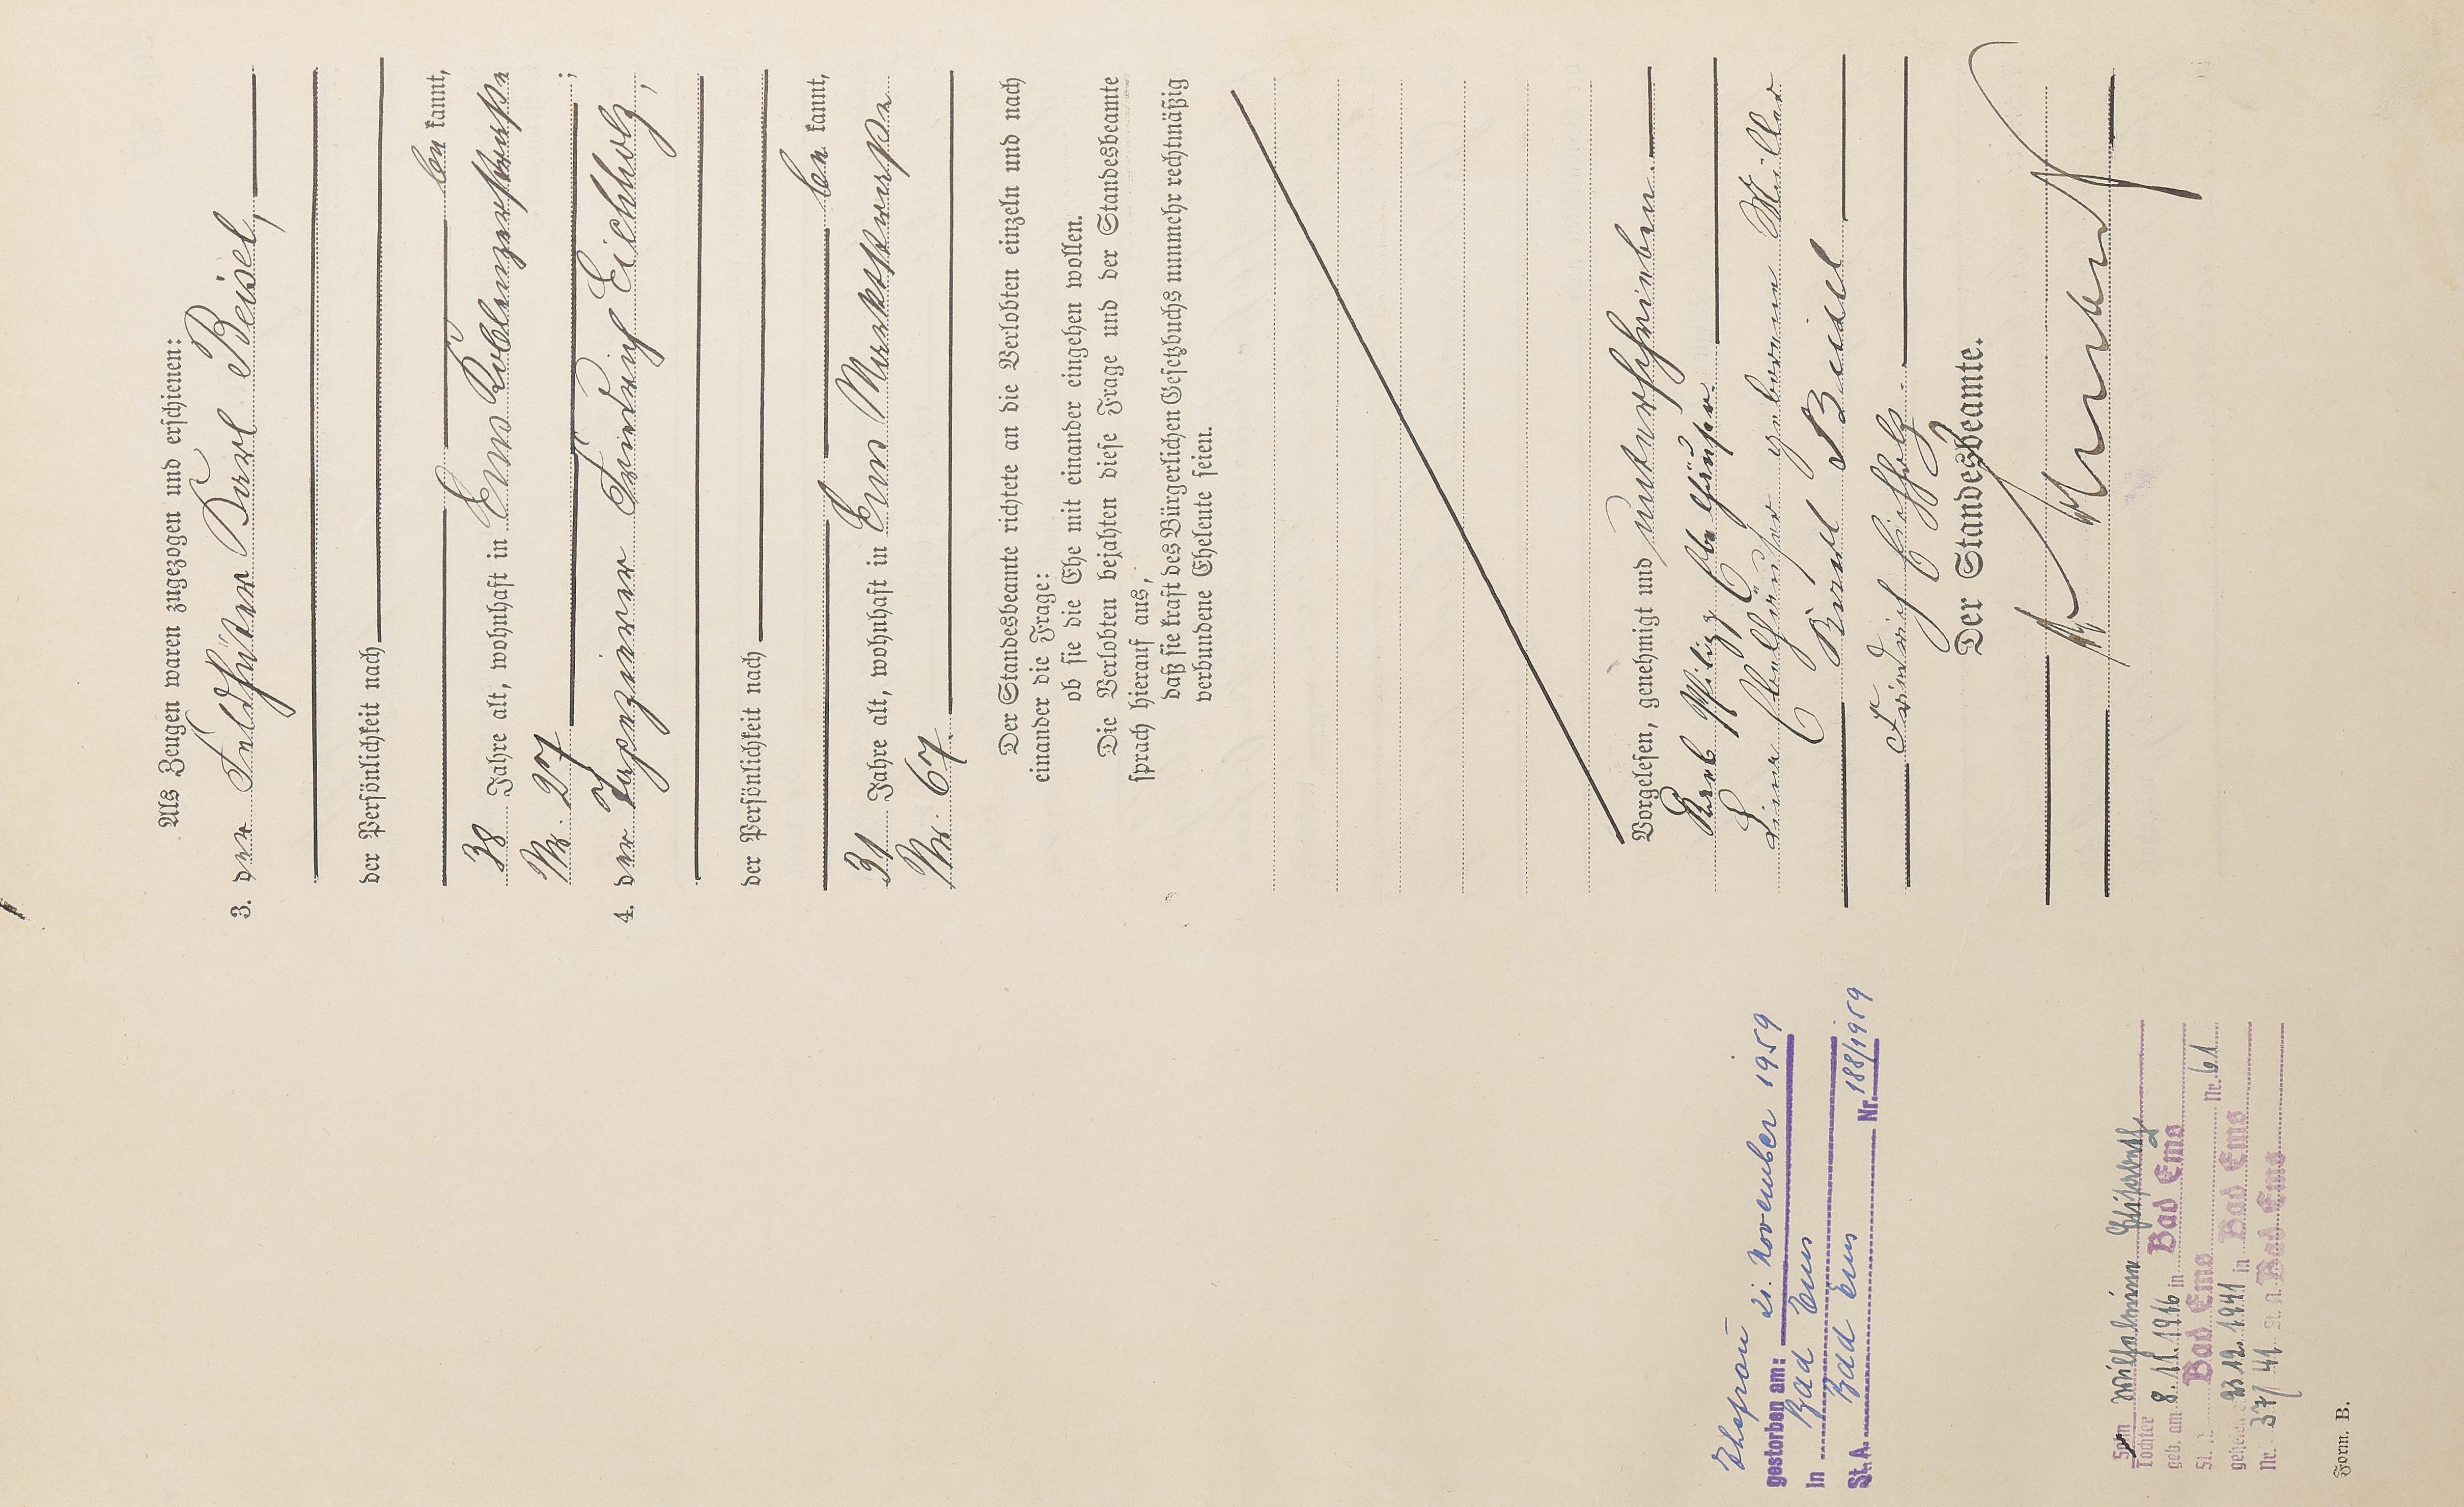 Als Zeugen waren zugezogen und erschienen:
3. der Feldhüter Karl Beisel,
der Persönlichkeit nach
be kannt,
38 Jahre alt, wohnhaft in Ems Koblenzerstraße
Nr. 27 ;
4. der Tapezierer Friedrich Eichholz,
der Persönlichkeit nach
be kannt,
31 Jahre alt, wohnhaft in Ems Marktstraße
Nr. 67.
Der Standesbeamte richtete an die Verlobten einzeln und nach
einander die Frage:
ob sie die Ehe mit einander eingehen wollen.
Die Verlobten bejahten diese Frage und der Standesbeamte
sprach hierauf aus,
daß sie kraft des Bürgerlichen Gesetzbuchs nunmehr rechtmäßig
verbundene Eheleute seien.
Vorgelesen, genehmigt und unterschrieben.
Karl Philipp Ebelhäuser.
Ebelhäuser geborene Müller
Karl Beisel
Friedrich Eichholz.
Der Standesbeamte.
Ehefrau
gestorben am: 21. November 1959
in Bad Ems
St.A. Bad Ems Nr. 188/1959
Sohn Wilhelm
Tochter
geb. am 8.11.1916 in Bad Ems
St. A. Bad Ems Nr. 61
geheir. 23.12.1941 in Bad Ems
Nr. 37/41 St. A. Bad Ems
Form. B.